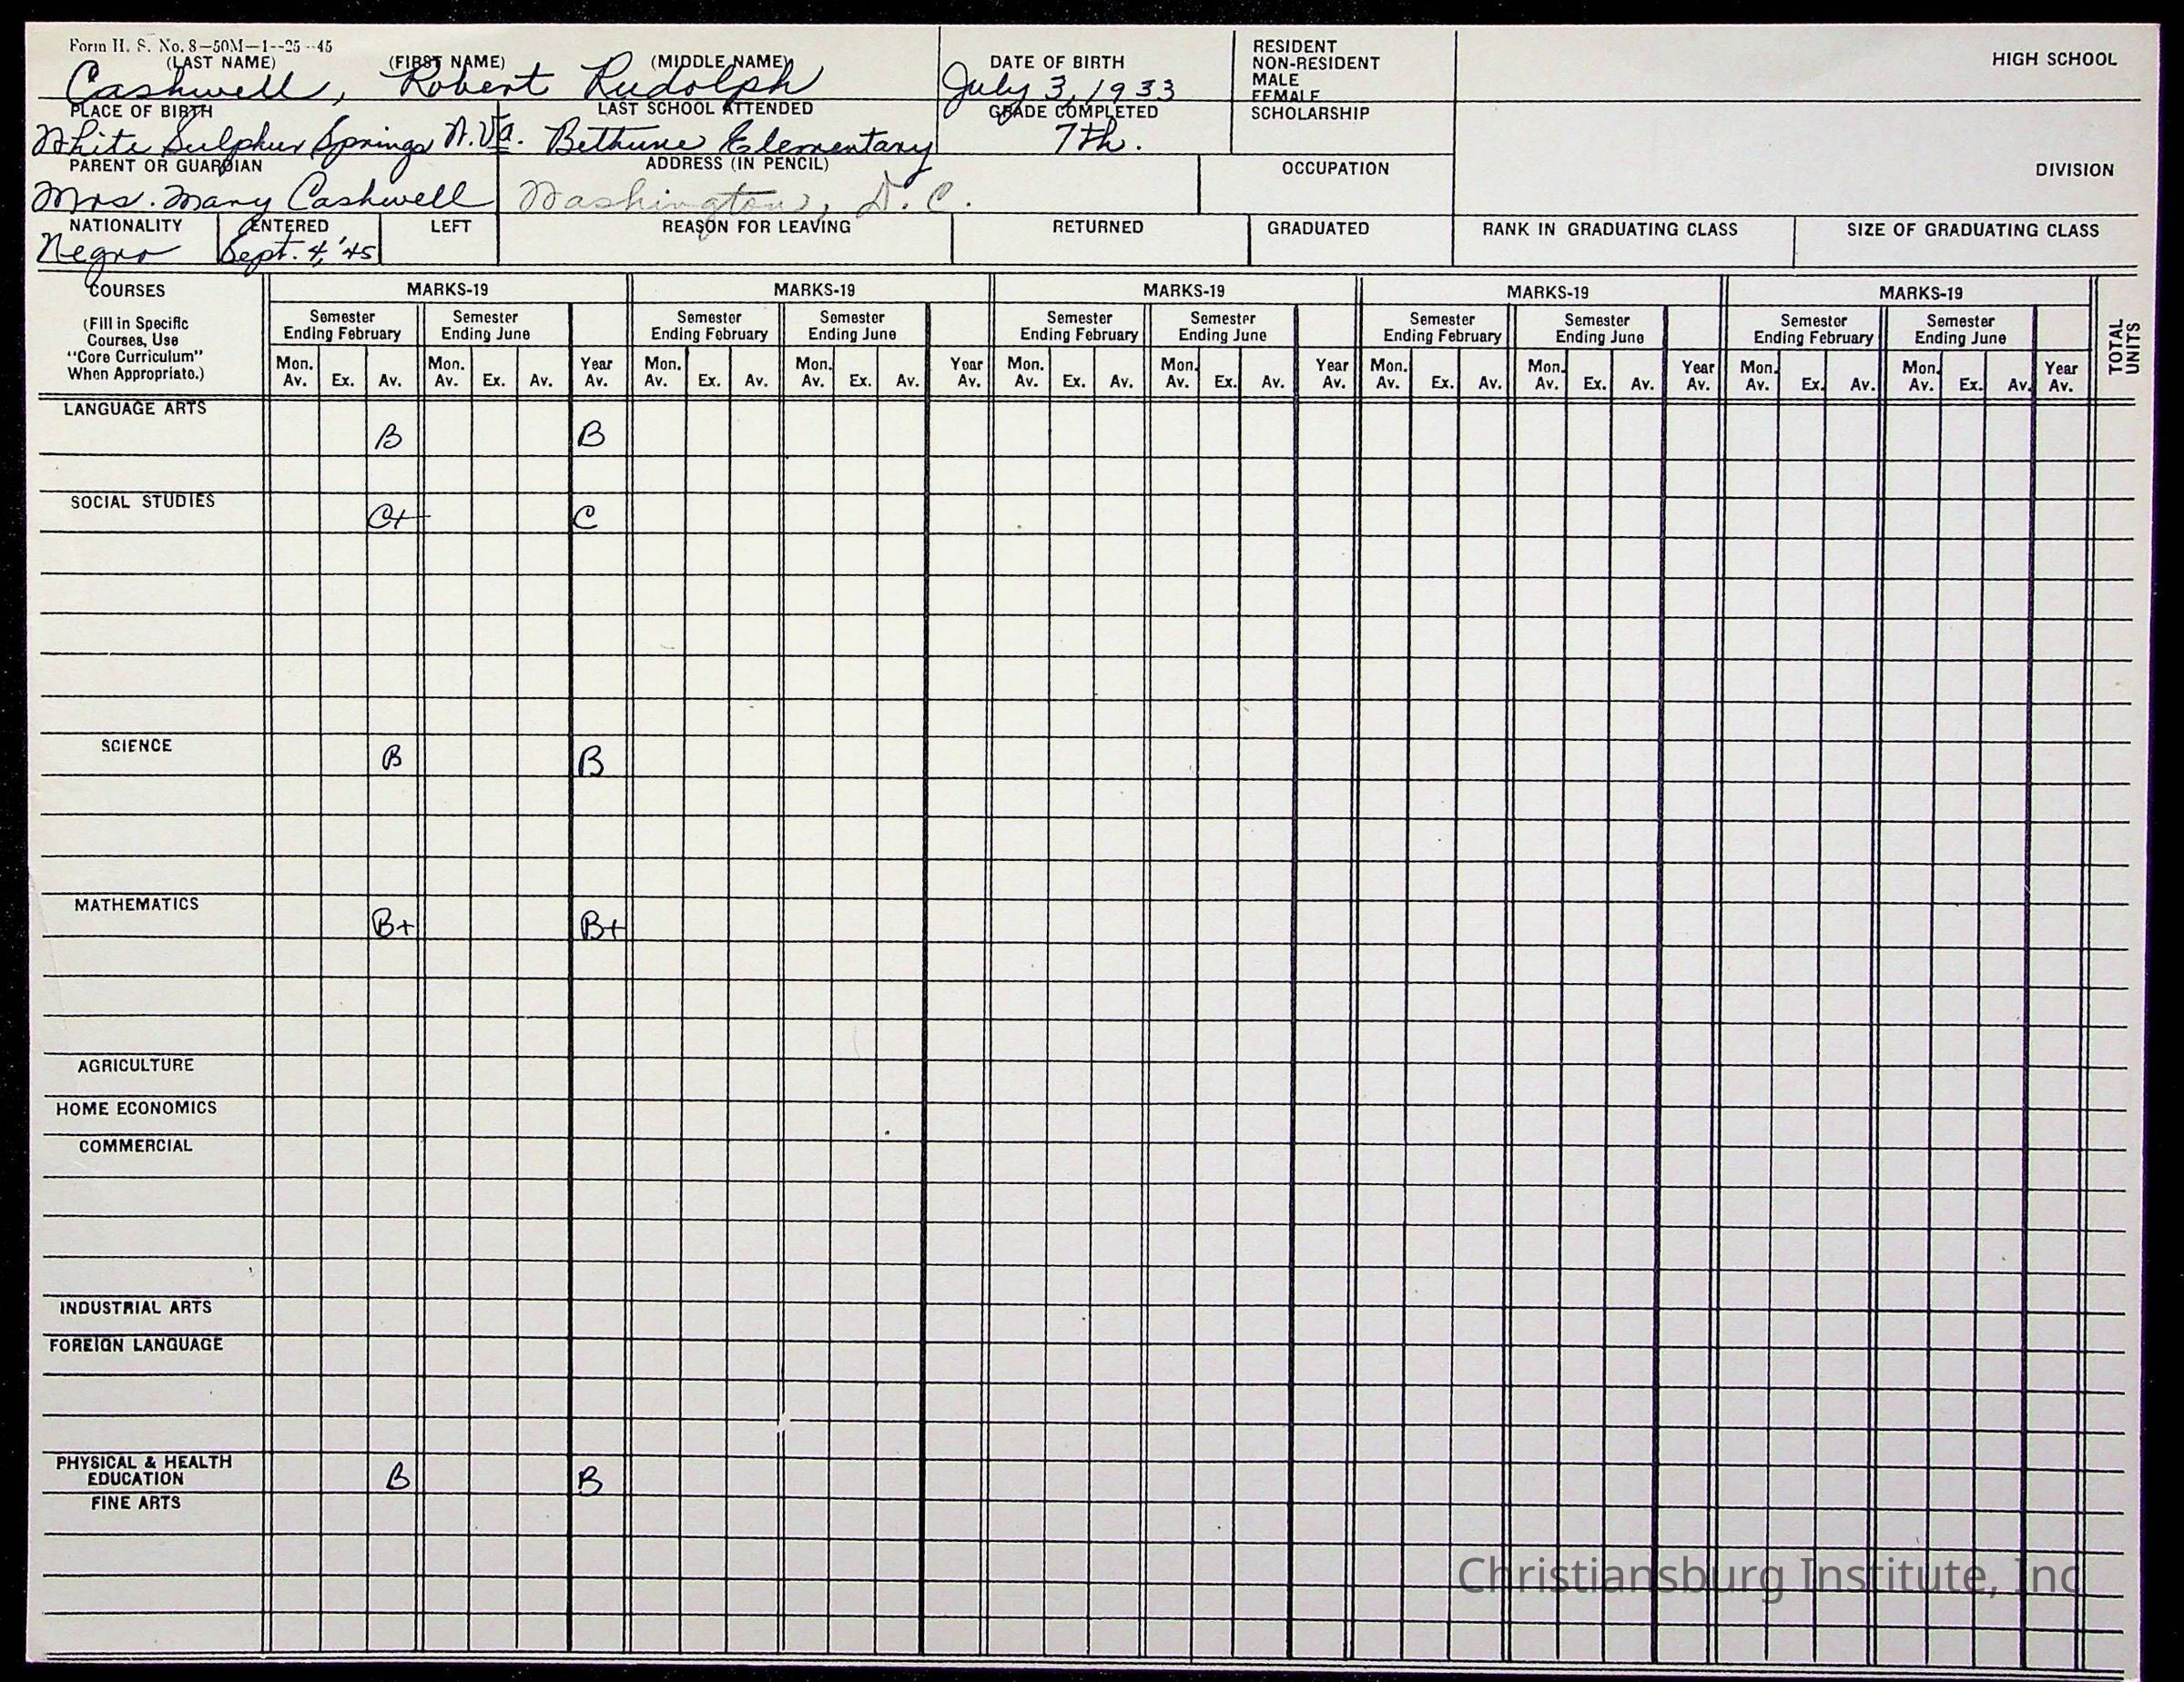 Form H. S. No. 8—50M—1--25--45
(LAST NAME) (FIRST NAME) (MIDDLE NAME) DATE OF BIRTH
Cashwell, Robert Rudolph July 3, 1933
RESIDENT
NON-RESIDENT
MALE
FEMALE
HIGH SCHOOL
PLACE OF BIRTH LAST SCHOOL ATTENDED GRADE COMPLETED SCHOLARSHIP
White Sulphur Springs W.Va. Bethune Elementary 7th.
PARENT OR GUARDIAN ADDRESS (IN PENCIL) OCCUPATION DIVISION
Mrs. Mary Cashwell Washington, D.C.
NATIONALITY ENTERED LEFT REASON FOR LEAVING RETURNED GRADUATED RANK IN GRADUATING CLASS SIZE OF GRADUATING CLASS
Negro Sept. 4, '45
COURSES MARKS-19 MARKS-19 MARKS-19 MARKS-19 MARKS-19
(Fill in Specific
Courses, Use
"Core Curriculum"
When Appropriate.)
Semester Semester Semester Semester Semester Semester Semester Semester Semester Semester
Ending February Ending June Ending February Ending June Ending February Ending June Ending February Ending June Ending February Ending June
TOTAL
UNITS
Mon. Mon. Year Mon. Mon. Year Mon. Mon. Year Mon. Mon. Year Mon. Mon. Year
Av. Ex. Av. Av. Ex. Av. Av. Av. Ex. Av. Av. Ex. Av. Av. Av. Ex. Av. Av. Ex. Av. Av. Av. Ex. Av. Av. Ex. Av. Av. Av. Ex. Av. Av. Ex. Av. Av.
LANGUAGE ARTS
B B
SOCIAL STUDIES
C+ C
SCIENCE
B B
MATHEMATICS
B+ B+
AGRICULTURE
HOME ECONOMICS
COMMERCIAL
INDUSTRIAL ARTS
FOREIGN LANGUAGE
PHYSICAL & HEALTH
EDUCATION B B
FINE ARTS
Christiansburg Institute, Inc